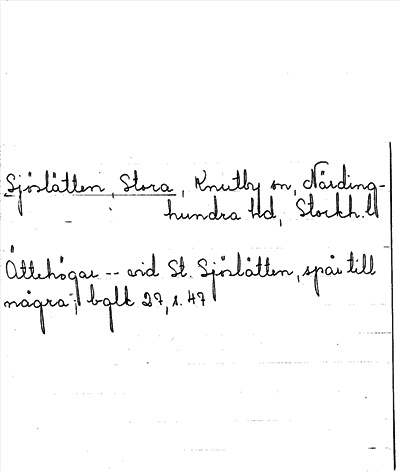 Sjöslåtten, Stora, Knutby sn, Närding-
hundra hd, Stockh. l
Ättehögar -- vid St. Sjöslåtten, spår till
några; bglk 27, s. 47